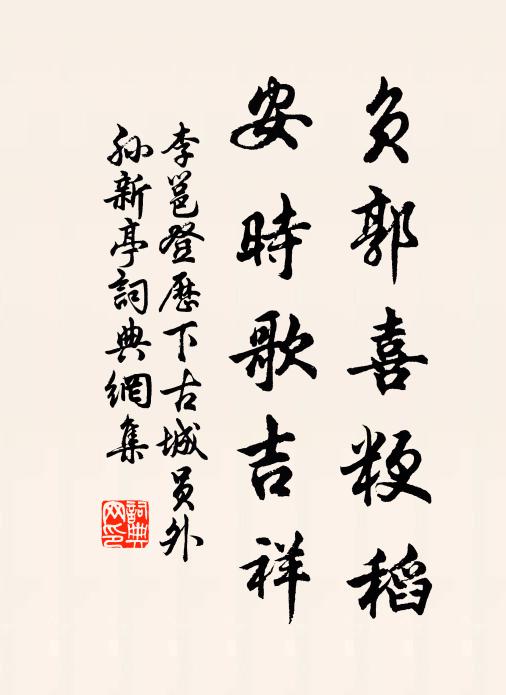 负郭喜粳稻
安時歌吉祥
李邕登歷下古城员外
孙新亭詞典網集
詞典
网印